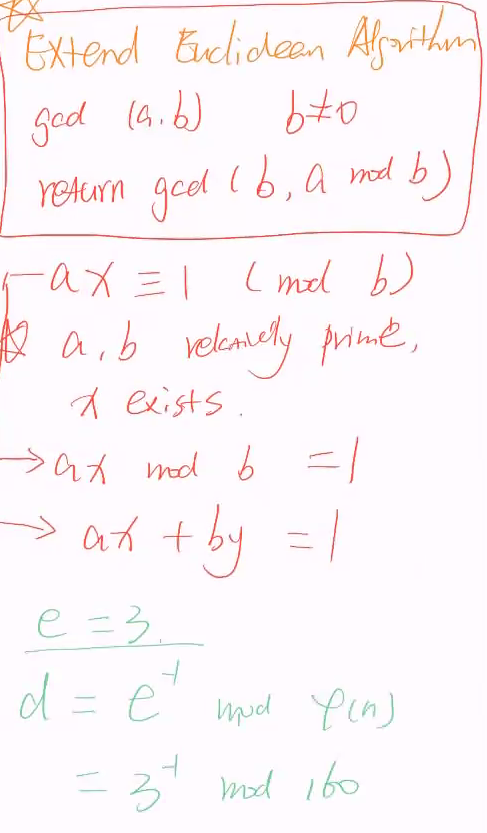 Extend Euclidean Algorithm
gcd (a, b) b≠0
return gcd (b, a mod b)
ax ≡ 1 (mod b)
a, b relatively prime,
x exists.
→ ax mod b = 1
→ ax + by = 1
e = 3.
d = e⁻¹ mod φ(n)
= 3⁻¹ mod 160